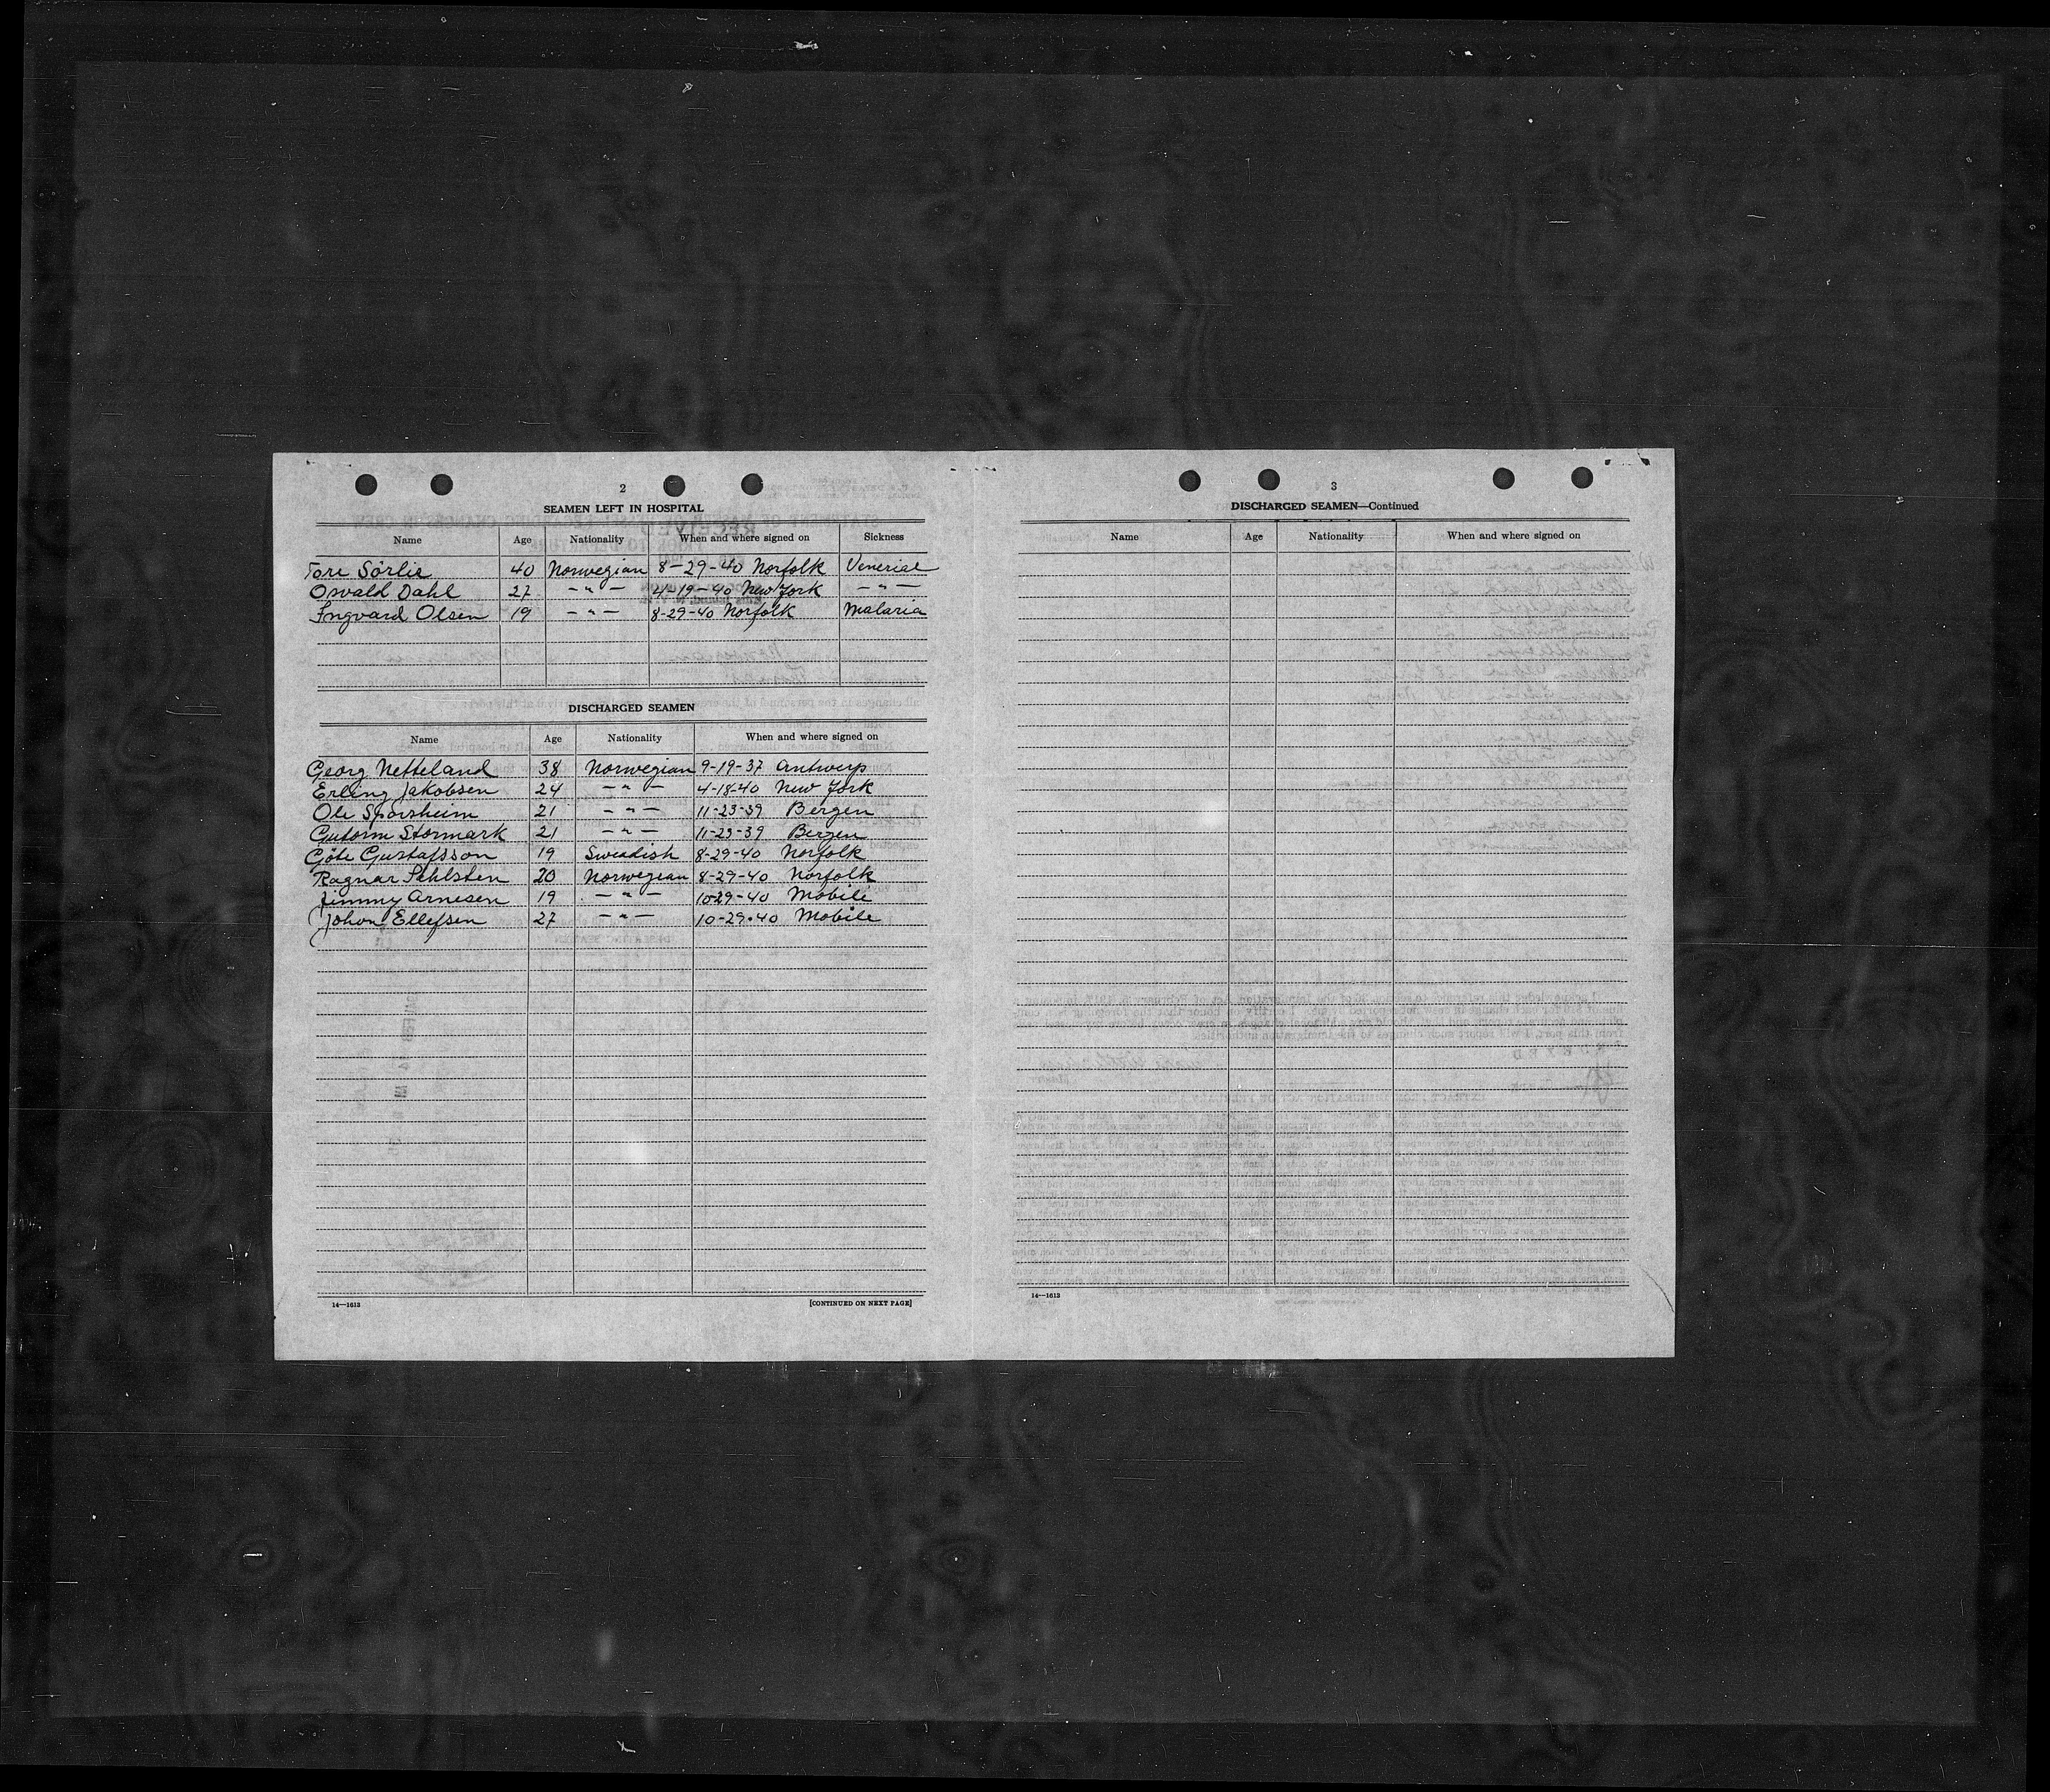 2
SEAMEN LEFT IN HOSPITAL
Name Age Nationality When and where signed on Sickness
Tore Sörlie 40 Norwegian 8-29-40 Norfolk Venerial
Osvald Dahl 27 -"- 4-19-40 New York -"-
Ingvard Olsen 19 -"- 8-29-40 Norfolk Malaria
DISCHARGED SEAMEN
Name Age Nationality When and where signed on
Georg Netteland 38 Norwegian 9-19-37 Antwerp
Erling Jakobsen 24 -"- 4-18-40 New York
Ole Sporsheim 21 -"- 11-23-39 Bergen
Gutorm Stormark 21 -"- 11-23-39 Bergen
Göte Gustafsson 19 Sweadish 8-29-40 Norfolk
Ragnar Sehlsten 20 Norwegian 8-29-40 Norfolk
Jimmy Arnesen 19 -"- 10-29-40 Mobile
Johan Ellefsen 27 -"- 10-29-40 Mobile
14—1613 [CONTINUED ON NEXT PAGE]
3
DISCHARGED SEAMEN—Continued
Name Age Nationality When and where signed on
14—1613